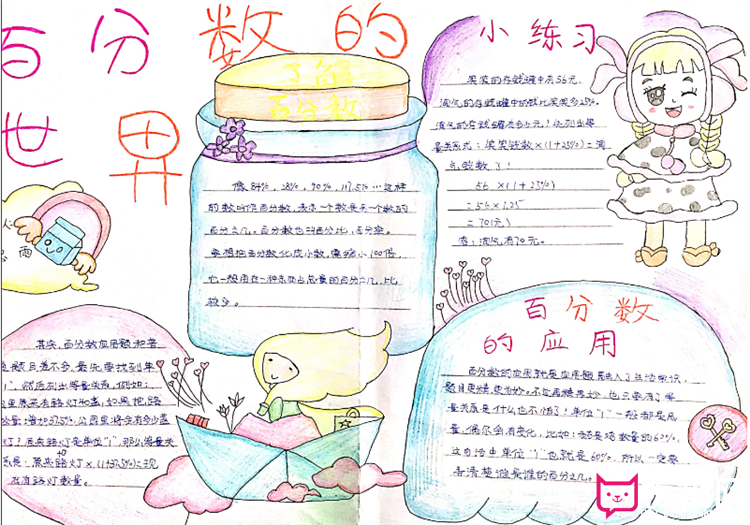 百分数的
世界
了解
百分数
像84%，28%，90%，117.5%…这样
的数叫作百分数，表示一个数是另一个数的
百分之几。百分数也叫百分比，百分率。
要想把百分数化成小数，需缩小100倍，
它一般用在一种表示占总量的百分之几，比
较多。
小练习
笑笑的存钱罐中有56元，
淘气的存钱罐中的钱比笑笑多25%，
淘气的存钱罐有多少元？
笑笑钱数×(1+25%)=淘
气钱数
56×(1+25%)
=56×1.25
=70(元)
答：淘气有70元。
其实，百分数应用题和普
题目差不多，最先要找到单
"1"，然后列出等量关系，例如：
园里原来有路灯40盏，如果把路
数量增加37.5%，公园里将会有多少盏
灯？原来路灯是单位"1"，那么等量关
系是：原来路灯×(1+37.5%)=现
在有路灯数量。
百分数
的应用
百分数的应用就是应用题融入了生活常识，
题目更精更妙。不过再精再妙，也只要有了等
量关系是什么也不怕了！单位"1"一般都是总
量，偶尔会有变化，比如：
这句话中单位"1"也就是60%，所以一定要
弄清楚谁是谁的百分之几。